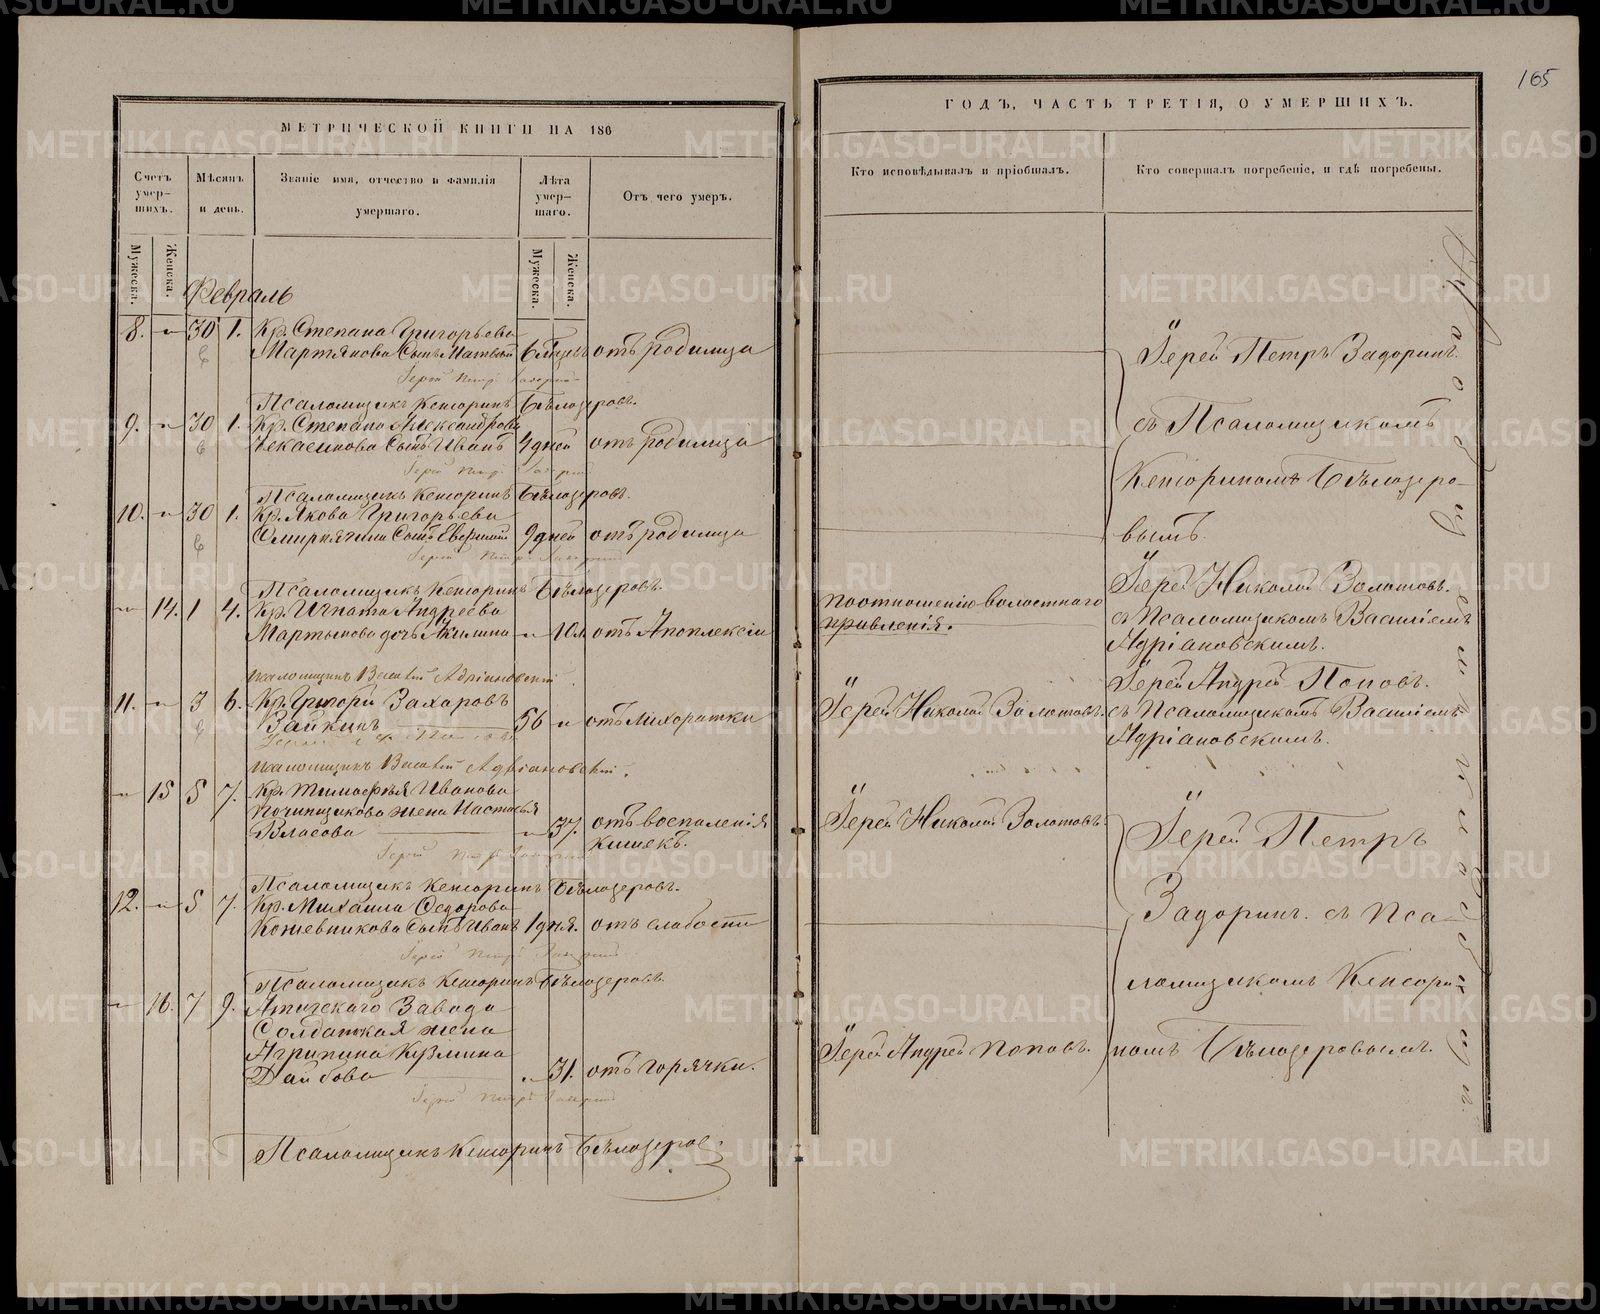 165
МЕТРИЧЕСКОЙ КНИГИ НА 186
ГОДЪ, ЧАСТЬ ТРЕТІЯ, О УМЕРШИХЪ.
Счетъ умер-шихъ.
Мѣсяцъ и день.
Званіе имя, отчество и фамилія умершаго.
Лѣта умер-шаго.
Отъ чего умеръ.
Кто исповѣдывалъ и пріобщалъ.
Кто совершалъ погребеніе, и гдѣ погребены.
Мужеска.
Женска.
Мужеска.
Женска.
Февраль
8. „ 30 1. Кр. Степана Григорьева
Мартьянова Сынъ Матвѣй 6 мѣсцъ отъ родимца
Іерей Петръ Задоринъ
Псаломщикъ Кенсоринъ Бѣлозеровъ.
9. „ 30 1. Кр. Степана Александрова
Сынъ Иванъ 4 дней отъ родимца
Іерей Петръ Задоринъ
Псаломщикъ Кенсоринъ Бѣлозеровъ.
10. „ 30 1. Кр. Якова Григорьева
Сынъ 9 дней отъ родимца
Іерей Петръ Задоринъ
Псаломщикъ Кенсоринъ Бѣлозеровъ.
„ 14. 1 4. Кр. Игната Андреева
Мартынова дочь Акилина „ 10 л. отъ Апоплексіи
псаломщикъ Василій Адріановскій.
11. „ 3 6. Кр. Григорій Захаровъ
Зайкинъ 56 „ отъ лихоратки
псаломщикъ Василій Адріановскій.
„ 15 5 7. Кр. Тимофѣя Иванова
Починщикова жена Настасья
Власова „ 37. отъ воспаленія
кишекъ.
Іерей Петръ Задоринъ
Псаломщикъ Кенсоринъ Бѣлозеровъ.
12. „ 5 7. Кр. Михаила Ѳедорова
Кожевникова Сынъ Иванъ 1 дня. отъ слабости
Іерей Петръ Задоринъ
Псаломщикъ Кенсоринъ Бѣлозеровъ
„ 16. 7 9. Атигскаго Завода
Солдатская жена
Агрипина Кузмина
Даибова „ 31. отъ горячки.
Іерей Петръ Задоринъ
Псаломщикъ Кенсоринъ Бѣлозеровъ
по отношенію волостнаго
правленія.
Іерей Николай Золотовъ.
Іерей Николай Золотовъ.
Іерей Андрей Поповъ.
Іерей Петръ Задоринъ.
съ Псаломщикомъ
Кенсориномъ Бѣлозеро-
вымъ.
Іерей Николай Золотовъ.
съ Псаломщикомъ Василіемъ
Адріановскимъ.
Іерей Андрей Поповъ.
съ Псаломщикомъ Василіемъ
Адріановскимъ.
Іерей Петръ
Задоринъ. съ Пса-
ломщикомъ Кенсори-
номъ Бѣлозеровымъ.
METRIKI.GASO-URAL.RU